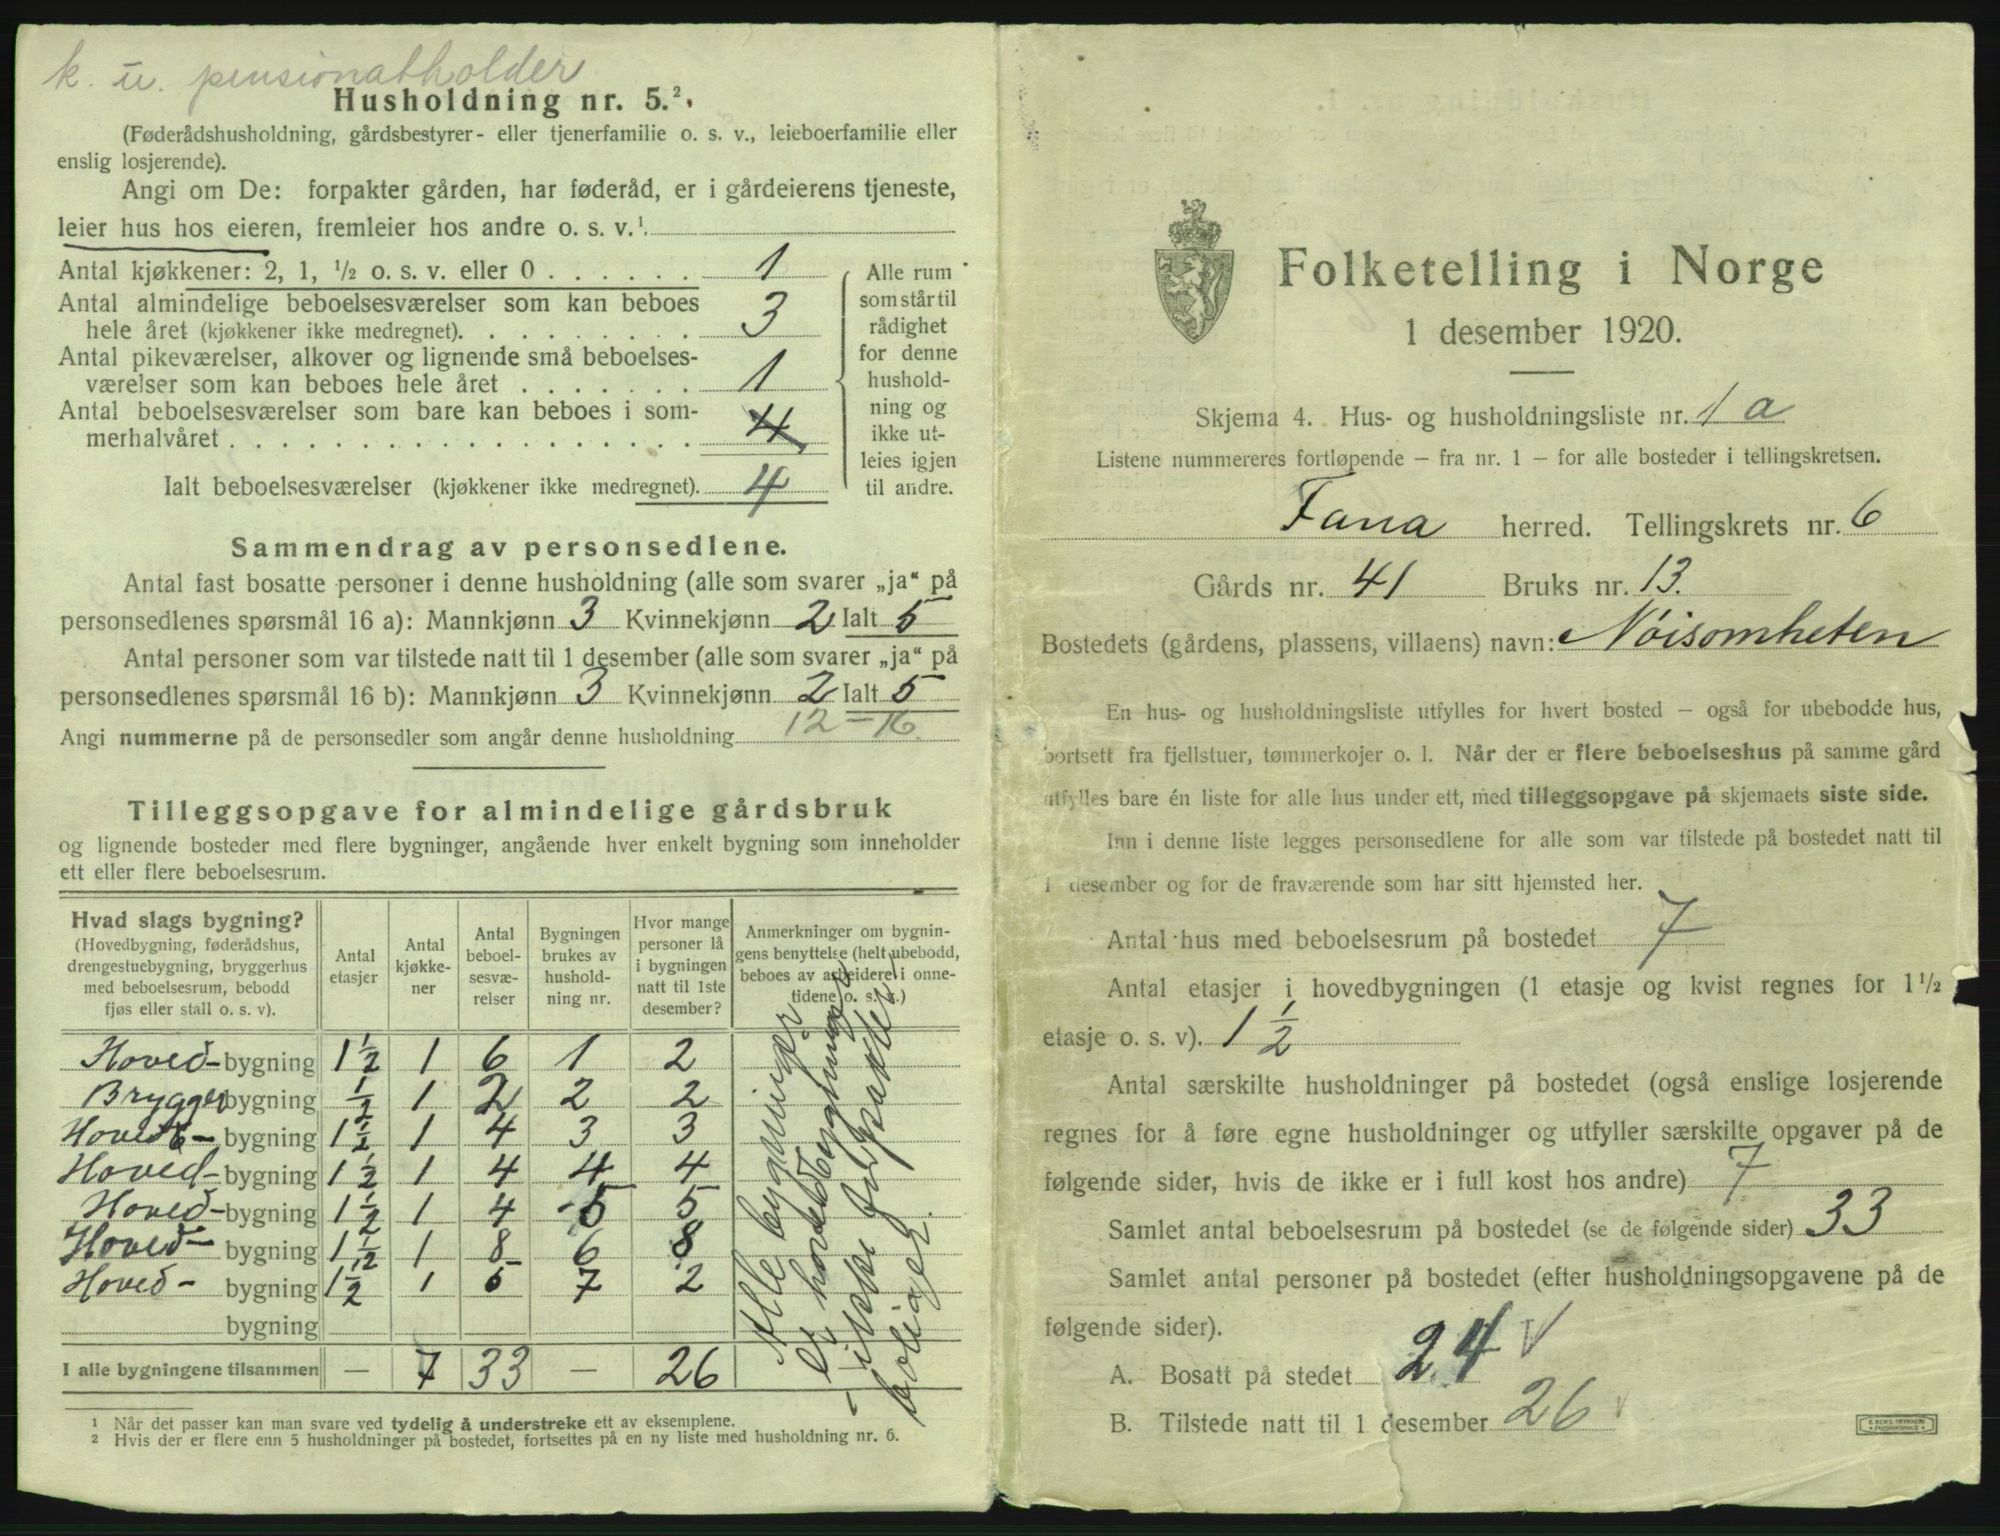 k. u. pensionatholder
Husholdning nr. 5.²
(Føderådshusholdning, gårdsbestyrer- eller tjenerfamilie o. s. v., leieboerfamilie eller
enslig losjerende).
Angi om De: forpakter gården, har føderåd, er i gårdeierens tjeneste,
leier hus hos eieren, fremleier hos andre o. s. v.¹
Antal kjøkkener: 2, 1, 1/2 o. s. v. eller 0 . . . . . . 1
Antal almindelige beboelsesværelser som kan beboes
hele året (kjøkkener ikke medregnet). . . . . . . . . 3
Antal pikeværelser, alkover og lignende små beboelses-
værelser som kan beboes hele året . . . . . . . 1
Antal beboelsesværelser som bare kan beboes i som-
merhalvåret . . . . . . . . . . . . . . . . . . 4
Ialt beboelsesværelser (kjøkkener ikke medregnet). 4
Alle rum
som står til
rådighet
for denne
hushold-
ning og
ikke ut-
leies igjen
til andre.
Sammendrag av personsedlene.
Antal fast bosatte personer i denne husholdning (alle som svarer „ja“ på
personsedlenes spørsmål 16 a): Mannkjønn 3 Kvinnekjønn 2 Ialt 5
Antal personer som var tilstede natt til 1 desember (alle som svarer „ja“ på
personsedlenes spørsmål 16 b): Mannkjønn 3 Kvinnekjønn 2 Ialt 5
Angi nummerne på de personsedler som angår denne husholdning 12 - 16.
Tilleggsopgave for almindelige gårdsbruk
og lignende bosteder med flere bygninger, angående hver enkelt bygning som inneholder
ett eller flere beboelsesrum.
Hvad slags bygning?
(Hovedbygning, føderådshus,
drengestuebygning, bryggerhus
med beboelsesrum, bebodd
fjøs eller stall o. s. v).
Antal
etasjer
Antal
kjøkke-
ner
Antal
beboel-
sesvæ-
relser
Bygningen
brukes av
hushold-
ning nr.
Hvor mange
personer lå
i bygningen
natt til 1ste
desember?
Anmerkninger om bygnin-
gens benyttelse (helt ubebodd,
beboes av arbeidere i onne-
tidene o. s. v.)
Hoved- bygning 1 1/2 1 6 1 2
Brygger bygning 1/2 1 2 2 2
Hoved- bygning 1 1/2 1 4 3 3
Hoved- bygning 1 1/2 1 4 4 4
Hoved- bygning 1 1/2 1 4 5 5
Hoved- bygning 1 1/2 1 8 6 8
Hoved- bygning 1 1/2 1 5 7 2
bygning
I alle bygningene tilsammen — 7 33 — 26
Alle bygninger
er hovedbygninger
- ikke forpakter
boliger.
¹ Når det passer kan man svare ved tydelig å understreke ett av eksemplene.
² Hvis der er flere enn 5 husholdninger på bostedet, fortsettes på en ny liste med husholdning nr. 6.
Folketelling i Norge
1 desember 1920.
Skjema 4. Hus- og husholdningsliste nr. 1 a
Listene nummereres fortløpende — fra nr. 1 — for alle bosteder i tellingskretsen.
Fana herred. Tellingskrets nr. 6
Gårds nr. 41 Bruks nr. 13.
Bostedets (gårdens, plassens, villaens) navn: Nøisomheten
En hus- og husholdningsliste utfylles for hvert bosted — også for ubebodde hus,
bortsett fra fjellstuer, tømmerkojer o. l. Når der er flere beboelseshus på samme gård
utfylles bare én liste for alle hus under ett, med tilleggsopgave på skjemaets siste side.
Inn i denne liste legges personsedlene for alle som var tilstede på bostedet natt til
1 desember og for de fraværende som har sitt hjemsted her.
Antal hus med beboelsesrum på bostedet 7
Antal etasjer i hovedbygningen (1 etasje og kvist regnes for 1 1/2
etasje o. s. v). 1 1/2
Antal særskilte husholdninger på bostedet (også enslige losjerende
regnes for å føre egne husholdninger og utfyller særskilte opgaver på de
følgende sider, hvis de ikke er i full kost hos andre) 7
Samlet antal beboelsesrum på bostedet (se de følgende sider) 33
Samlet antal personer på bostedet (efter husholdningsopgavene på de
følgende sider).
A. Bosatt på stedet 24 v
B. Tilstede natt til 1 desember 26 v